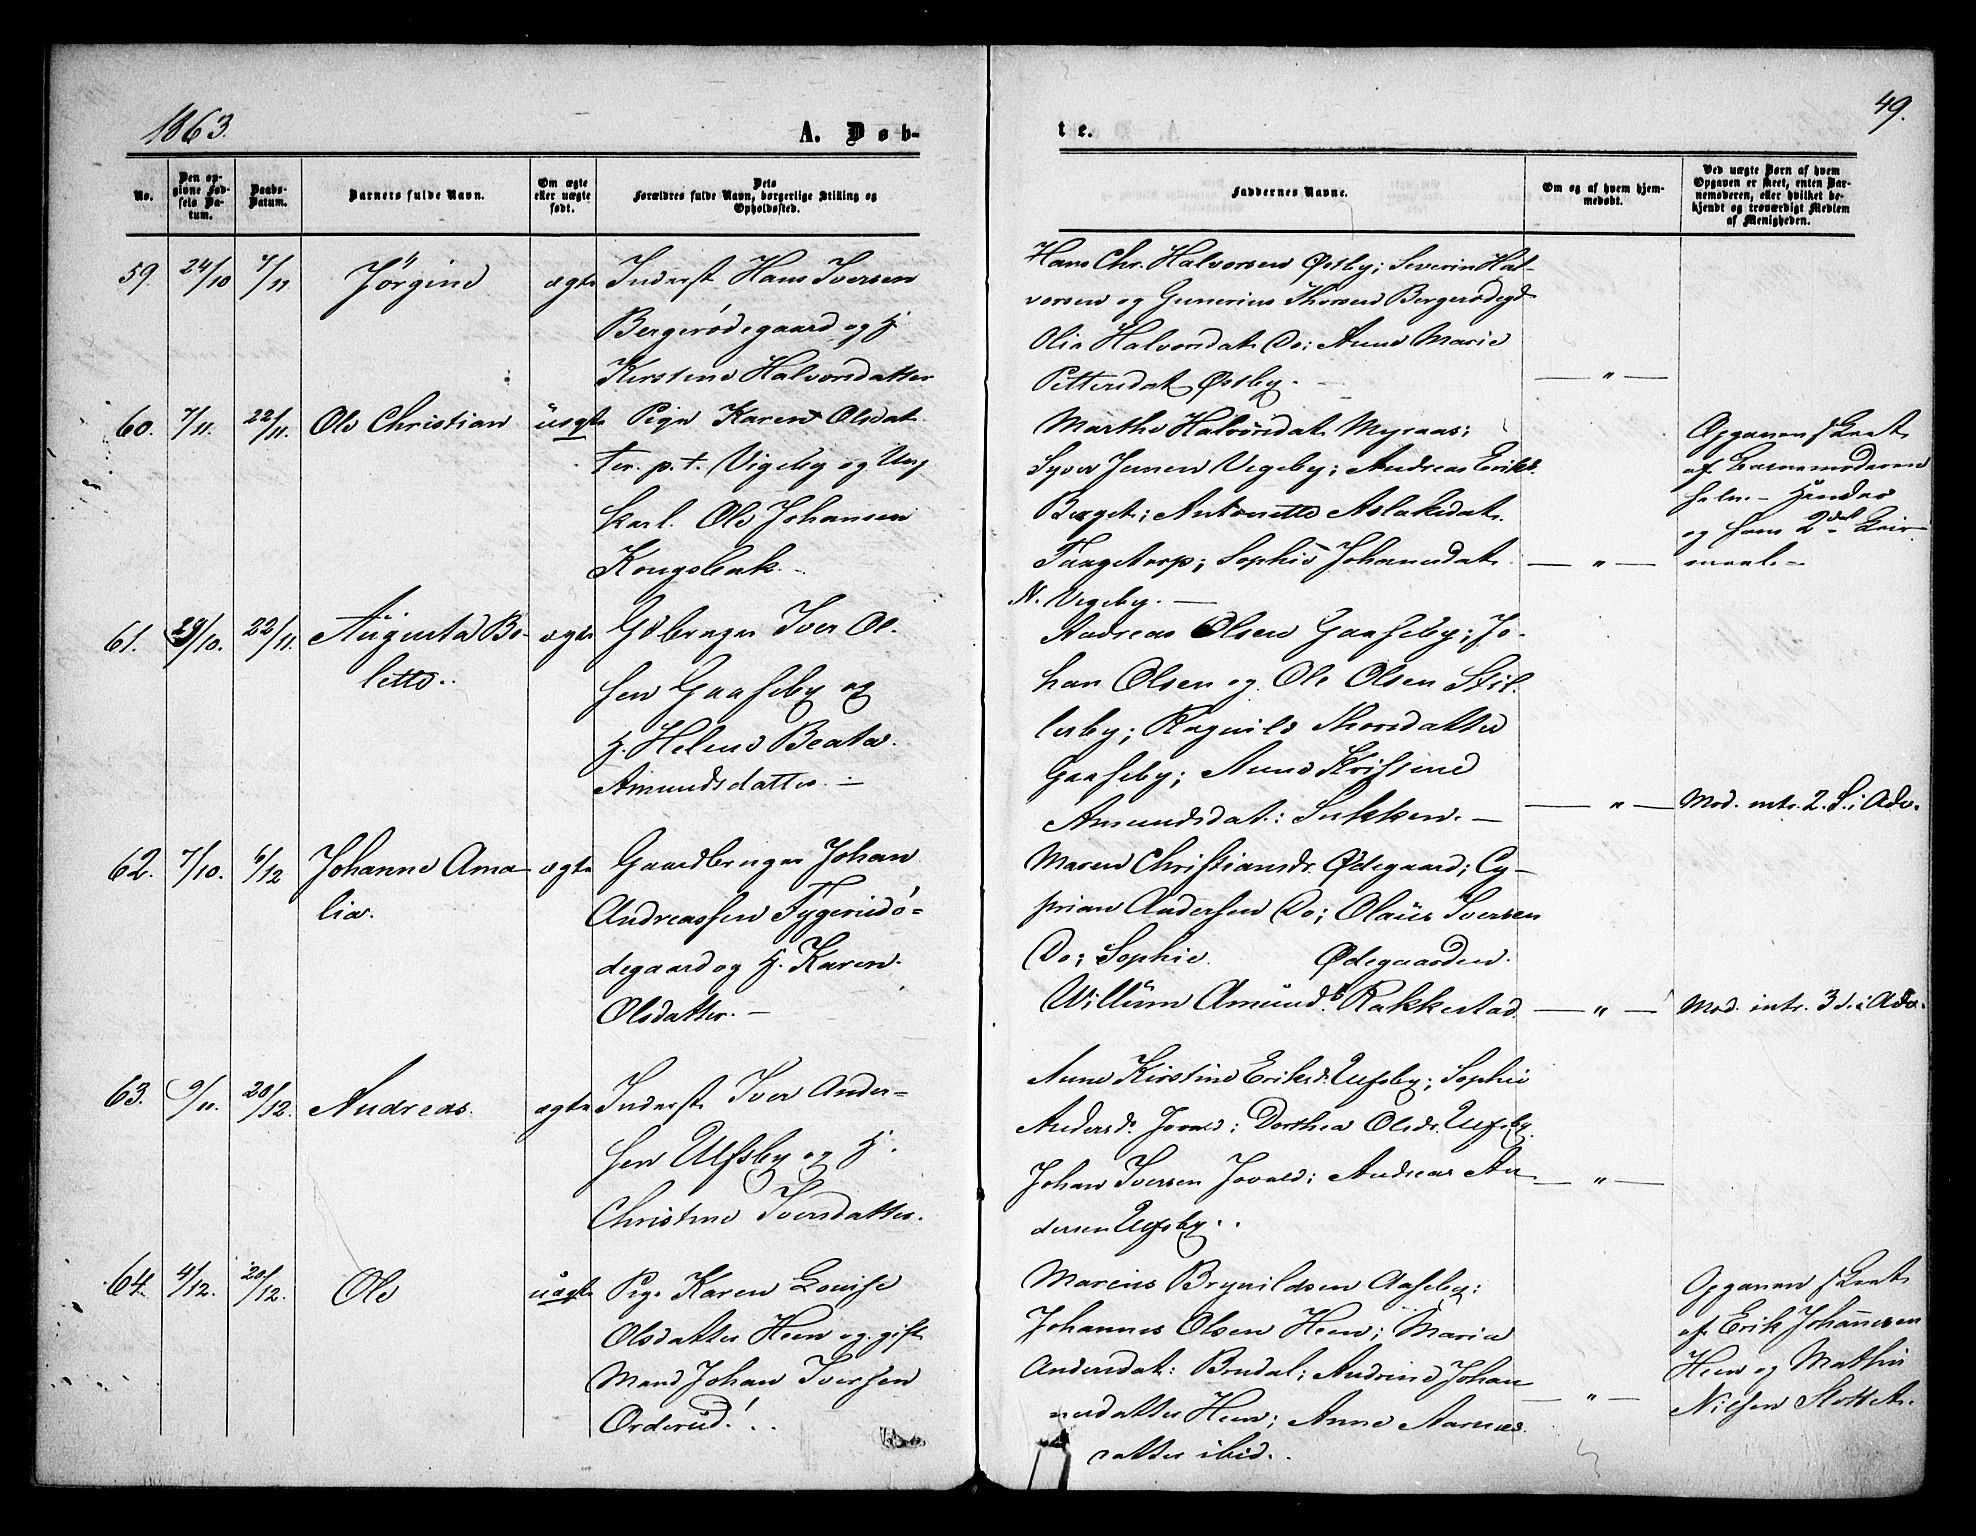 1863.
A. Døb-
te.
49.
No.
Den op-
givne Fød-
sels Da-
tum.
Daabs-
Datum.
Barnets fulde Navn.
Om ægte
eller uægte
født.
Dets
Forældres fulde Navn, borgerlige Stilling og
Opholdssted.
Faddernes Navne.
Om og af hvem hjem-
medøbt.
Ved uægte Børn af hvem
Opgaven er skeet, enten Bar-
nemoderen, eller hvilket be-
kjendt og troværdigt Medlem
af Menigheden.
59 24/10 1/11 Jørgine ægte Inderst Hans Iversen
Bergerødegaard og H.
Kirstine Halvorsdatter
Hans Chr. Halvorsen Østby; Severin Hal-
vorsen og Gunerius Thorsen Bergerødegd
Olia Halvorsdat. Do; Anne Marie
Pettersdat. Østby. — " —
60. 7/11. 22/11. Ole Christian uægte Pige Karen Olsdat-
ter. p.t. Vigeby og Ung-
karl. Ole Johansen
Kongsbak.
Marthe Halvorsdat. Myraas;
Syver Jensen Vegeby; Andreas Eriks.
Berget; Antonette Aslaksdat.
Taagetorp; Sophie Johannesdat.
N. Vegeby. — " —
Opgaven skeet
af Barnemoderen
selv. – Hendes
og hans 2det Leier-
maal. –
61. 29/10. 22/11. Augusta Bo-
lette. ægte Gdbruger Iver Ol-
sen Gaaseby og
H. Helene Beata
Amundsdatter. –
Andreas Olsen Gaaseby; Jo-
han Olsen og Ole Olsen Stil-
lesby; Ragnild Thorsdatter
Gaaseby; Anne Kristine
Amundsdat.: Sukken. – — " — Mod. intr. 2. S. i Adv.
62. 7/10. 6/12 Johanne Ama-
lia. ægte Gaardbruger Johan
Andreassen Tygerudø-
degaard og H. Karen
Olsdatter. –
Maren Christiansdr. Ødegaard; Cy-
prian Andersen Do; Olaüs Iversen
Do; Sophie Ødegaarden.
Willum Amunds. Rakkestad. — " — Mod. intr. 3 S. i Adv.
63. 9/11. 20/12. Andreas. ægte Inderst Iver Ander-
sen Ulfsby og H.
Christine Iversdatter.
Anne Kirstine Eriksd. Ulfsby; Sophie
Andersd. Jovald; Dorthea Olsdr. Ulfsby.
Johan Iversen Jovald; Andreas An-
dersen Ulfsby. — " —
64. 4/12. 20/12. Ole uægte Pige Karen Louise
Olsdatter Heen og gift
Mand Johan Iversen
Orderud!
Marius Brynildsen Aaseby;
Johannes Olsen Heen; Maria
Andersdat: Brudal; Andrine Johan-
nesdatter Heen; Anne Aarnes-
datter ibid. — " —
Opgaven skeet
af Erik Johannesen
Heen og Mathis
Nilsen Slottet.